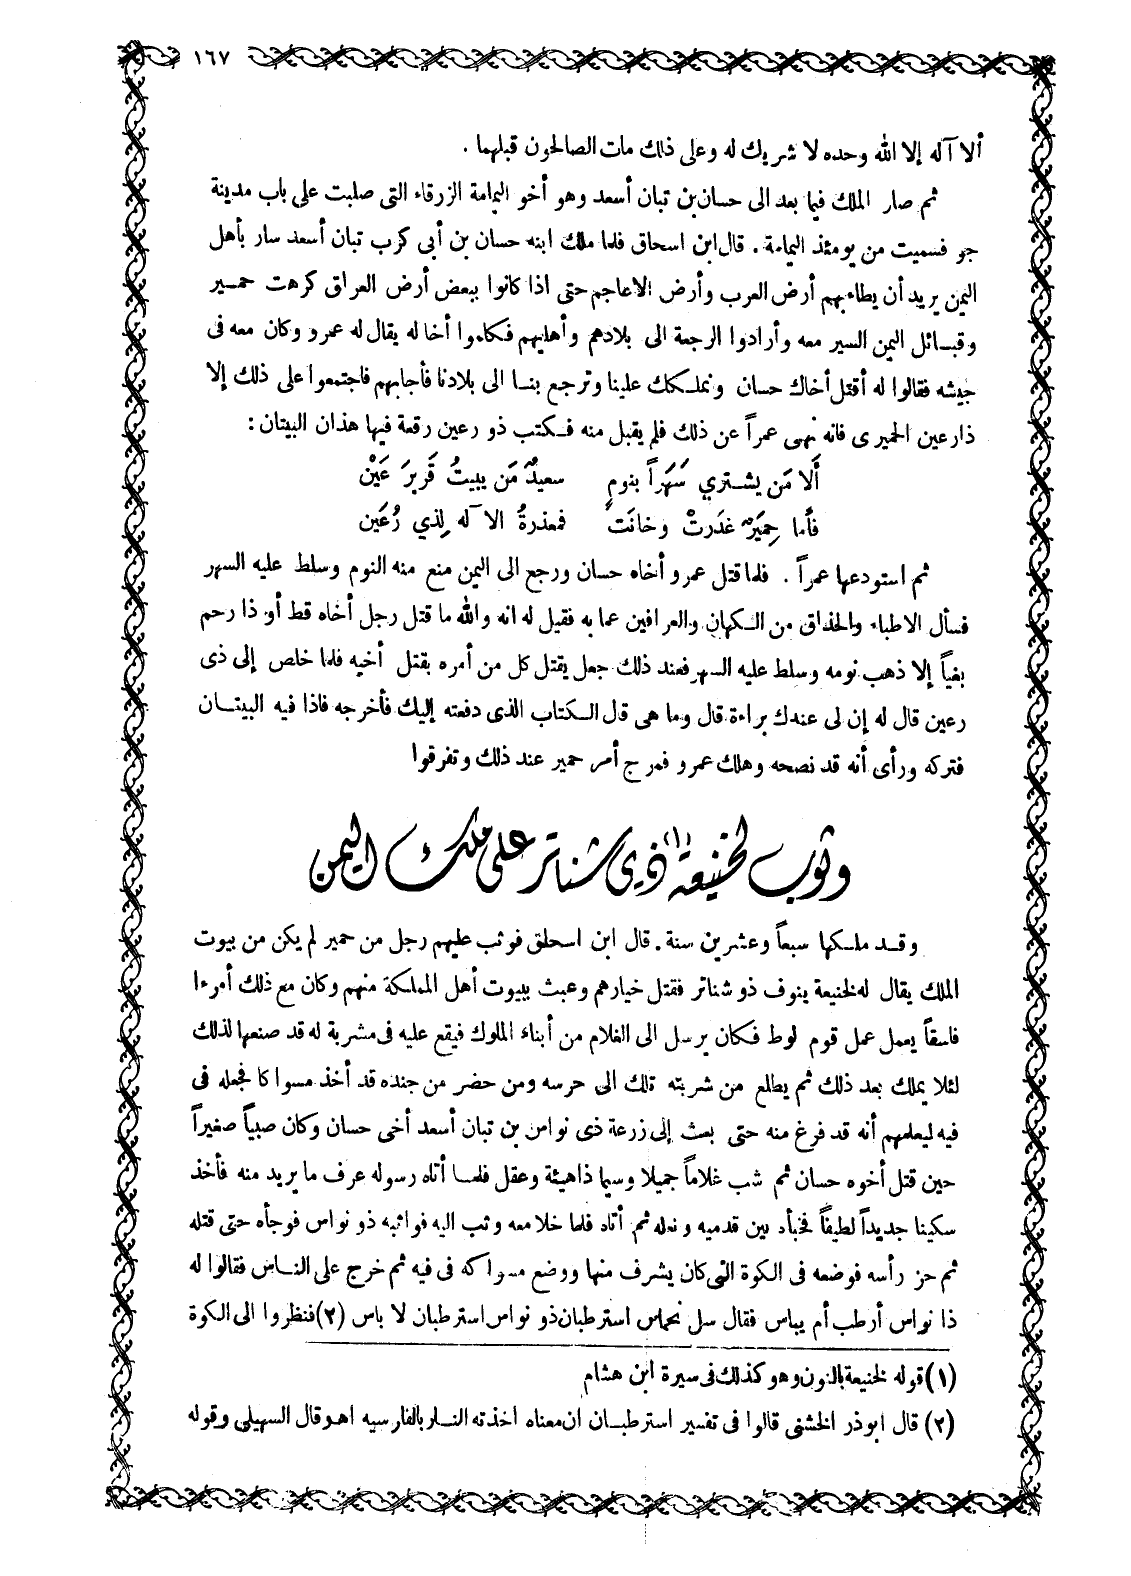 ١٦٧
ألا آله إلا الله وحده لا شريك له وعلى ذلك مات الصالحون قبلهما .
ثم صار الملك فيما بعد الى حسان بن تبان أسعد وهو أخو اليمامة الزرقاء التى صلبت على باب مدينة
جو فسميت من يومئذ اليمامة . قال ابن اسحاق فلما ملك ابنه حسان بن أبى كرب تبان أسعد سار بأهل
اليمن يريد أن يطاء بهم أرض العرب وأرض الاعاجم حتى اذا كانوا ببعض أرض العراق كرهت حمير
وقبائل اليمن السير معه وأرادوا الرجعة الى بلادهم وأهليهم فكلموا أخا له يقال له عمرو وكان معه فى
جيشه فقالوا له أقتل أخاك حسان ونملكك علينا وترجع بنا الى بلادنا فأجابهم فاجتمعوا على ذلك إلا
ذا رعين الحميرى فانه نهى عمراً عن ذلك فلم يقبل منه فكتب ذو رعين رقعة فيها هذان البيتان :
أَلا مَن يشتري سَهَراً بنومٍ سعيدٌ مَن يبيتُ قَريرَ عَيْن
فأما حِميَرٌ غدَرتْ وخانَت فمعذرةُ الآله لِذي رُعَين
ثم استودعها عمراً . فلما قتل عمرو أخاه حسان ورجع الى اليمن منع منه النوم وسلط عليه السهر
فسأل الاطباء والحذاق من الكهان والعرافين عما به فقيل له انه والله ما قتل رجل أخاه قط أو ذا رحم
بغياً إلا ذهب نومه وسلط عليه السهر فعند ذلك جعل يقتل كل من أمره بقتل أخيه فلما خلص إلى ذى
رعين قال له إن لى عندك براءة قال وما هى قال الكتاب الذى دفعته إليك فأخرجه فاذا فيه البيتان
فتركه ورأى أنه قد نصحه وهلك عمرو فمرج أمر حمير عند ذلك وتفرقوا
وثوب لخنيعة (١) ذي شناتر على ملك اليمن
وقد ملكها سبعاً وعشرين سنة . قال ابن اسحلق فوثب عليهم رجل من حمير لم يكن من بيوت
الملك يقال له لخنيعة ينوف ذو شناتر فقتل خيارهم وعبث ببيوت أهل المملكة منهم وكان مع ذلك أمرءا
فاسقاً يعمل عمل قوم لوط فكان يرسل الى الغلام من أبناء الملوك فيقع عليه فى مشربة له قد صنعها لذلك
لئلا يملك بعد ذلك ثم يطلع من شربته تلك الى حرسه ومن حضر من جنده قد أخذ مسواكا فجعله فى
فيه ليعلمهم أنه قد فرغ منه حتى بعث إلى زرعة ذى نواس بن تبان أسعد أخى حسان وكان صبياً صغيراً
حين قتل أخوه حسان ثم شب غلاماً جميلا وسيما ذا هيئة وعقل فلما أتاه رسوله عرف ما يريد منه فأخذ
سكينا جديداً لطيفاً فخبأد بين قدميه ونعله ثم أتاه فلما خلا معه وثب اليه فواثبه ذو نواس فوجأه حتى قتله
ثم حز رأسه فوضعه فى الكوة التى كان يشرف منها ووضع مسواكه فى فيه ثم خرج على الناس فقالوا له
ذا نواس أرطب أم يباس فقال سل نحماس استرطبان ذو نواس استرطبان لا باس (٢) فنظروا الى الكوة
(١) قوله لخنيعة بالنون وهو كذلك فى سيرة ابن هشام
(٢) قال ابوذر الخشنى قالوا فى تفسير استرطبان ان معناه اخذته النار بالفارسيه اهو قال السهيلى وقوله